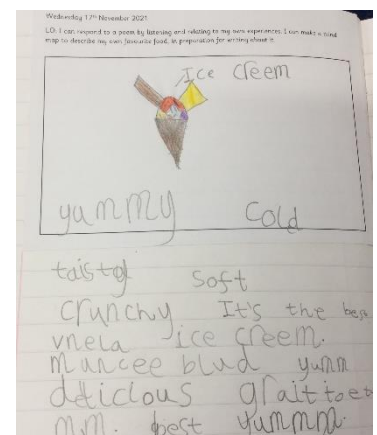 Wednesday 17th November 2021
LO: I can respond to a poem by listening and relating to my own experiences. I can make a mind
map to describe my own favourite food, in preparation for writing about it.
Ice creem
yummy cold
taisty soft
crunchy It's the best
vnela ice creem.
muncee blud yumm
delicious
mm. best yummm